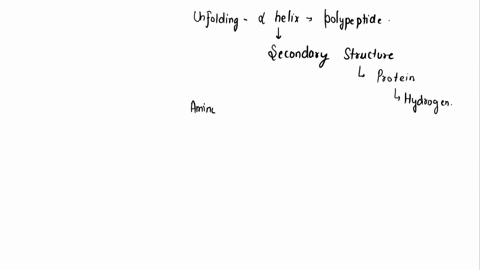 Unfolding - α helix → polypeptide.
↓
Secondary Structure
↳ Protein
↳ Hydrogen.
Amino